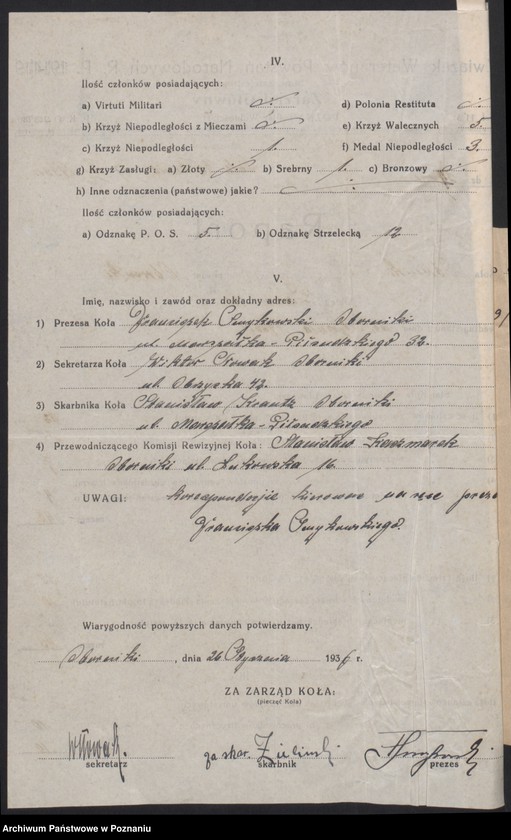 IV.
Ilość członków posiadających:
a) Virtuti Militari
d) Polonia Restituta
b) Krzyż Niepodległości z Mieczami
e) Krzyż Walecznych 5.
c) Krzyż Niepodległości 1.
f) Medal Niepodległości 3.
g) Krzyż Zasługi: a) Złoty b) Srebrny 1. c) Bronzowy
h) Inne odznaczenia (państwowe) jakie?
Ilość członków posiadających:
a) Odznakę P. O. S. 5. b) Odznakę Strzelecką 12
V.
Imię, nazwisko i zawód oraz dokładny adres:
1) Prezesa Koła Franciszek Oborniki
ul. Marszałka-Piłsudskiego 32.
2) Sekretarza Koła Wiktor Nowak Oborniki
ul. Obrzycka 42.
3) Skarbnika Koła Stanisław Krantz Oborniki
ul. Marszałka-Piłsudskiego
4) Przewodniczącego Komisji Rewizyjnej Koła: Stanisław Kaczmarek
Oborniki ul. Łukowska 16.
UWAGI: Korespondencje kierować na ręce
Franciszka
Wiarygodność powyższych danych potwierdzamy.
Oborniki, dnia 26 Stycznia 1936 r.
ZA ZARZĄD KOŁA:
(pieczęć Koła)
WNowak. za skar. Zieliński
sekretarz skarbnik prezes
Archiwum Państwowe w Poznaniu